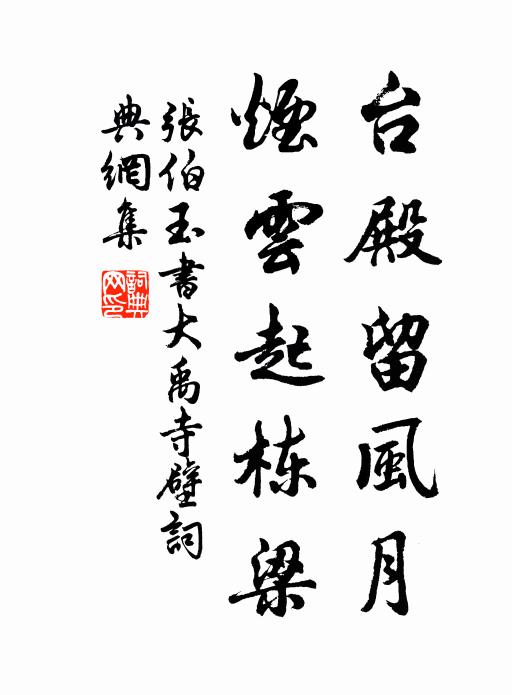 台殿留風月
煙雲起栋梁
張伯玉書大禹寺壁詞
典網集
詞典网印